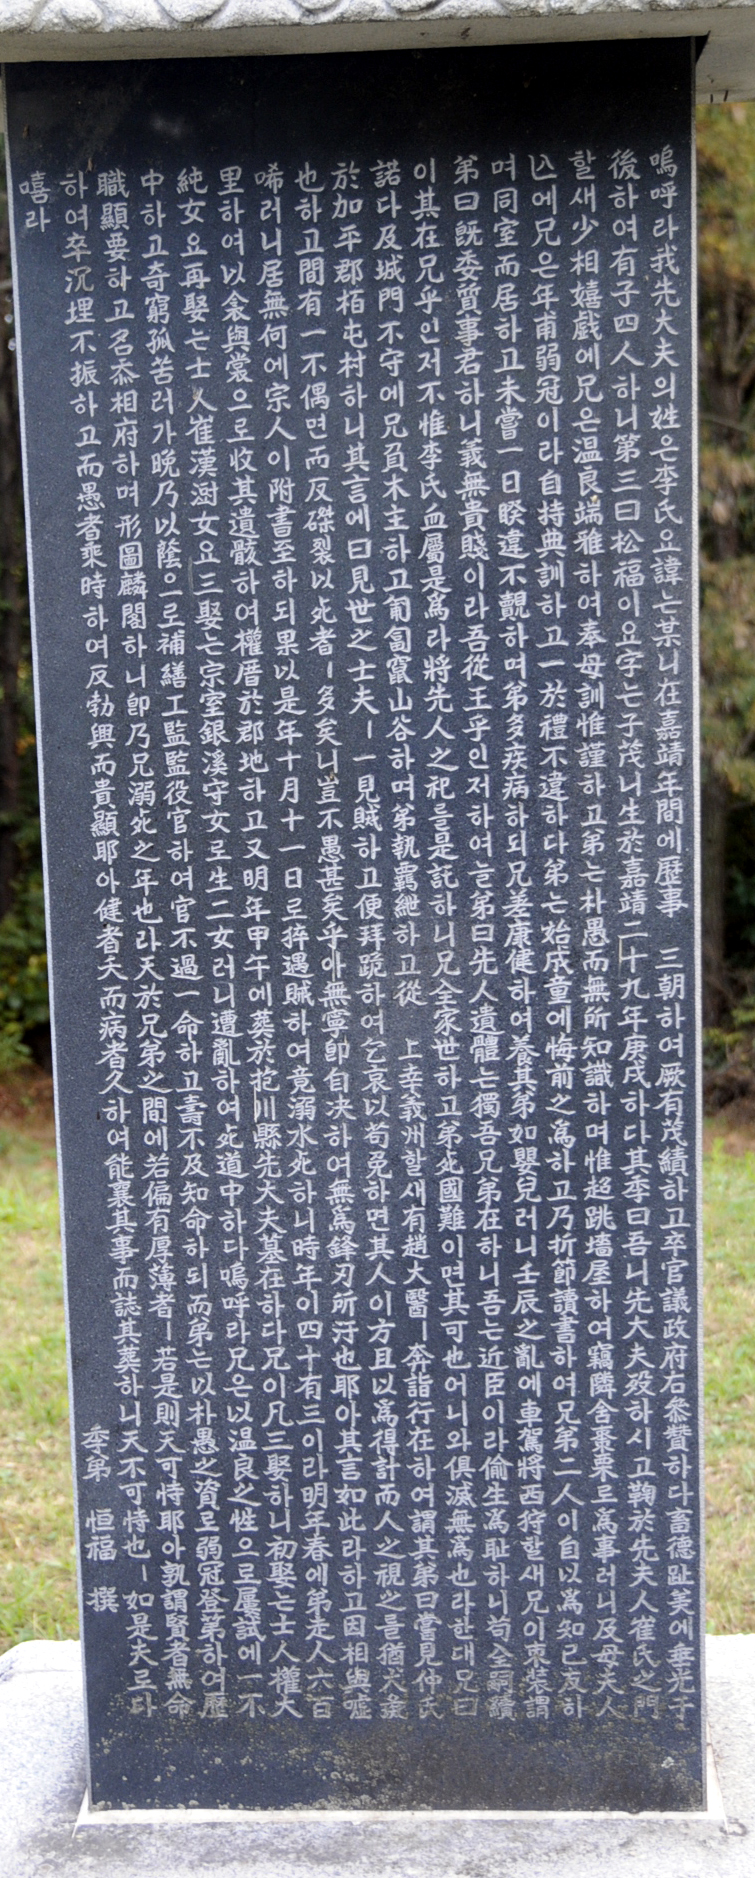 嗚呼라我先大夫의姓은李氏요諱는某니在嘉靖年間에歷事 三朝하여厥有茂績하고卒官議政府右參贊하다畜德趾美에垂光于
後하여有子四人하니第三曰松福이요字는子茂니生於嘉靖二十九年庚戌하다其季曰吾니先大夫歿하시고鞠於先夫人崔氏之門
할새少相嬉戲에兄은温良端雅하여奉母訓惟謹하고弟는朴愚而無所知識하며惟超跳墻屋하여竊隣舍棗栗로爲事러니及母夫人
亾에兄은年甫弱冠이라自持典訓하고一於禮不違하다弟는始成童에悔前之爲하고乃折節讀書하여兄弟二人이自以爲知己友하
며同室而居하고未嘗一日暌違不覿하며弟多疾病하되兄差康健하여養其弟如嬰兒러니壬辰之亂에車駕將西狩할새兄이束裝謂
弟曰旣委質事君하니義無貴賤이라吾從王乎인저하여늘弟曰先人遺體는獨吾兄弟在하니吾는近臣이라偷生爲耻하니苟全嗣續
이其在兄乎인저不惟李氏血屬是爲라將先人之祀를是託하니兄全家世하고弟死國難이면其可也어니와俱滅無爲也라한대兄曰
諾다及城門不守에兄負木主하고匍匐竄山谷하며弟執覊紲하고從 上幸義州할새有趙大醫ㅣ奔詣行在하여謂其弟曰嘗見仲氏
於加平郡栢屯村하니其言에曰見世之士夫ㅣ一見賊하고便拜跪하여乞哀以苟免하면其人이方且以爲得計而人之視之를猶犬彘
也하고間有一不偶면而反磔裂以死者ㅣ多矣니豈不愚甚矣乎아無寧卽自決하여無爲鋒刃所汙也耶아其言如此라하고因相與噓
唏러니居無何에宗人이附書至하되果以是年十月十一日로猝遇賊하여竟溺水死하니時年이四十有三이라明年春에弟走人六百
里하여以衾與裳으로收其遺骸하여權厝於郡地하고又明年甲午에葬於抱川縣先大夫墓在하다兄이凡三娶하니初娶는士人權大
純女요再娶는士人崔漢澍女요三娶는宗室銀溪守女로生二女러니遭亂하여死道中하다嗚呼라兄은以温良之性으로屢試에一不
中하고奇窮孤苦러가晩乃以蔭으로補繕工監監役官하여官不過一命하고壽不及知命하되而弟는以朴愚之資로弱冠登第하여歷
職顯要하고名忝相府하며形圖麟閣하니卽乃兄溺死之年也라天於兄弟之間에若偏有厚薄者ㅣ若是則天可恃耶아孰謂賢者無命
하여卒沉埋不振하고而愚者乘時하여反勃興而貴顯耶아健者夭而病者久하여能襄其事而誌其葬하니天不可恃也ㅣ如是夫로다
嘻라
季弟 恒福 撰